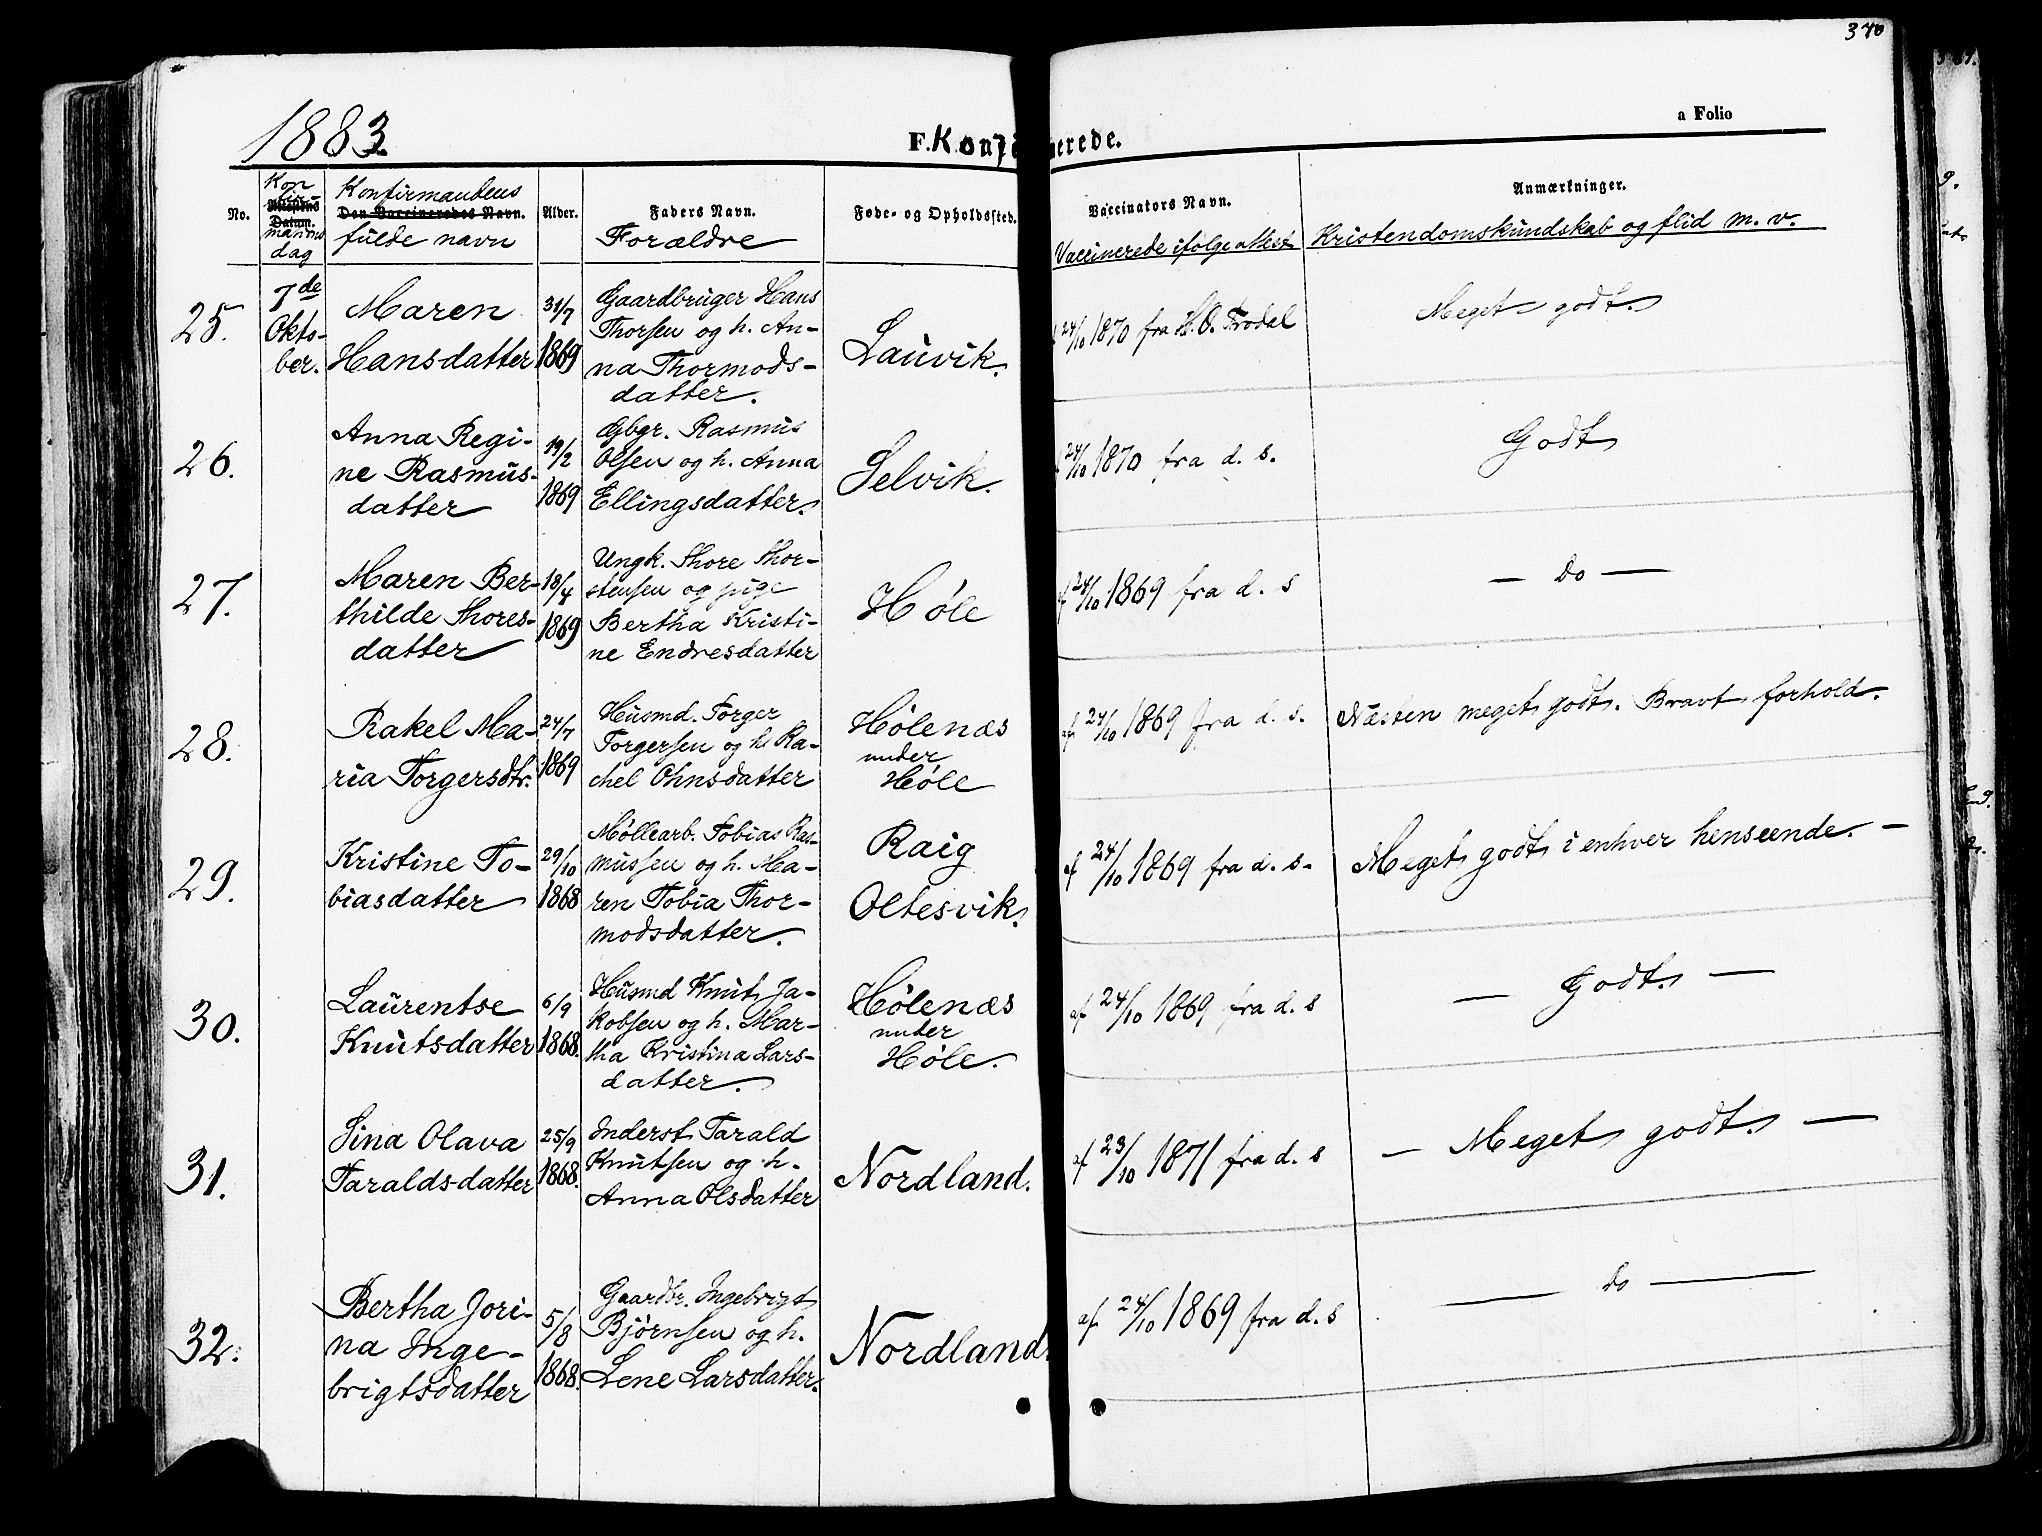 370
1883.
F. Konfirmerede.
a Folio
No.
Konfirmasjons
Attestens
Datum.
dag
Konfirmandens
Den Vaccineredes Navn.
fulde navn
Alder.
Faders Navn.
Forældre
Føde- og Opholdssted.
Vaccinators Navn.
Vaccinerede ifølge attest
Anmærkninger.
Kristendomskundskab og flid m. v.
25.
7de
Okto-
ber.
Maren
Hansdatter
31/7
1869
Gaardbruger Hans
Thorsen og h. An-
na Thormods-
datter.
Lauvik.
24/10 1870 fra H. O. Frodal
Meget godt.
26.
Anna Regi-
ne Rasmus-
datter
19/2
1869
Gbgr. Rasmus
Olsen og h. Anna
Ellingsdatter.
Selvik.
24/10 1870 fra d. s.
Godt
27.
Maren Ber-
thilde Thores-
datter
18/4
1869
Ungk. Thore Thor-
stensen og pige
Bertha Kristi-
ne Endresdatter
Høle
af 24/10 1869 fra d. s
— do —
28.
Rakel Ma-
ria Torgersdtr.
24/7
1869
Husmd. Torger
Torgersen og h. Ra-
chel Ohnsdatter
Hølenæs
under
Høle
af 24/10 1869 fra d. s.
Næsten meget godt. Bravt forhold.
29.
Kristine To-
biasdatter
29/10
1868
Møllearb. Tobias Ras-
mussen og h. Ma-
ren Tobia Thor-
modsdatter.
Raig
Oltesvik.
af 24/10 1869 fra d. s.
Meget godt i enhver henseende. —
30.
Laurentse
Knutsdatter
6/9
1868.
Husmd Knut Ja-
kobsen og h. Mar-
tha Kristina Lars-
datter.
Hølenæs
under
Høle.
af 24/10 1869 fra d. s
— Godt. —
31.
Sina Olava
Taraldsdatter
25/9
1868.
Inderst Tarald
Knutsen og h.
Anna Olsdatter
Nordland.
af 23/10 1871 fra d. s
— Meget godt. —
32.
Bertha Jori-
na Inge-
brigtsdatter
5/8
1868.
Gaardbr. Ingebrigt
Bjørnsen og h.
Lene Larsdatter.
Nordland.
af 24/10 1869 fra d. s
— do —